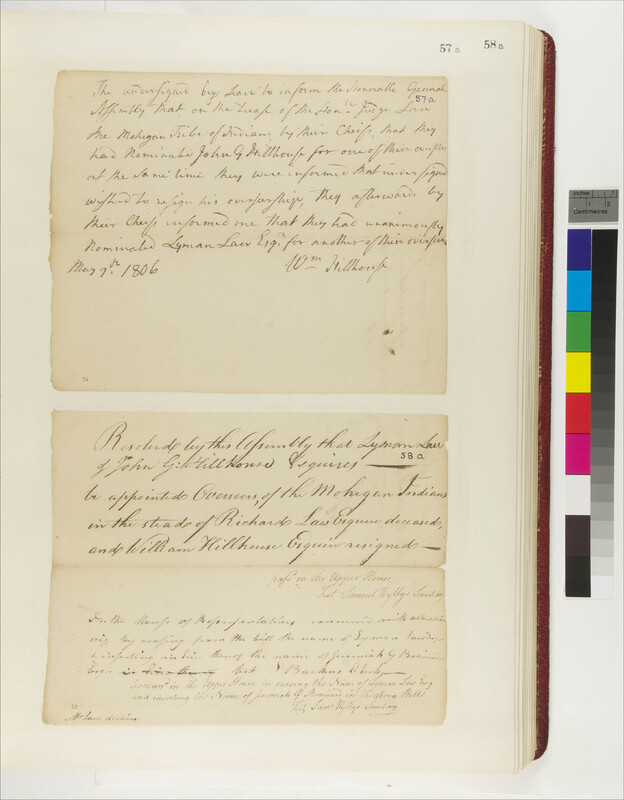 57a 58a
The undersigned begs leave to inform the Honorable General
Assembly that on the Decease of the Honble Judge Law
57a
the Mohegan Tribe of Indians by their Cheifs, that they
had Nominated John G Hillhouse for one of their overseers
at the same time they were informed that undersigned
wished to resign his overseership, they afterwards by
their Cheifs informed me that they had unanimously
Nominated Lyman Law Esqr for another of their overseers
May 7th 1806 Wm Hillhouse
Resolved by this Assembly that Lyman Law
& John G. Hillhouse Esquires
58a
be appointed Overseers, of the Mohegan Indians
in the steads of Richard Law Esquire deceased,
and William Hillhouse Esquire resigned
Passd in the Upper House
Test Samuel Wyllys Secretary
In the House of Representatives concurred with alteration
viz by erasing from the bill the name of Lyman Law Esqr
& inserting in lieu thereof the name of Jeremiah G Brainard
Esqr Test Backus Clerk
Concurd in the Upper House in erasing the Name of Lyman Law Esq
and inserting the Name of Jeremiah G Brainard in this Bill
Test Saml Wyllys Secretary
Mr Law declines